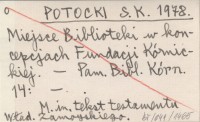 POTOCKI S. K. 1978.
Miejsce Biblioteki w kon-
cepcjach Fundacji Kórnic-
kiej. — Pam. Bibl. Kórn.
14: -
M. in. tekst testamentu
Wład. Zamoyskiego.